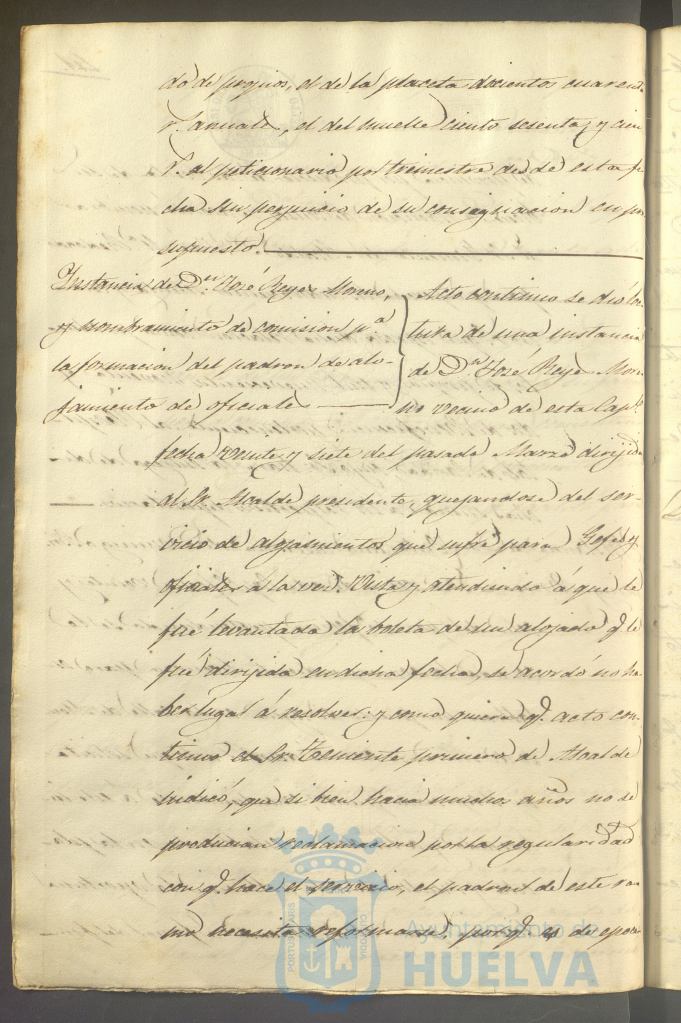 do de propios, el de la placeta docientos cuarenta
r.s anuales, el del muelle ciento sesenta; y cien
r.s al peticionario por trimestre desde esta fe-
cha sin perjuicio de su consignacion en pre
supuesto.
Instancia de Dn. José Reyes Moreno,
y nombramiento de comision p.a
la formacion del padron de alo-
jamiento de oficiales
Acto continuo se dió lec
tura de una instancia
de Dn. José Reyes More
no vecino de esta Cap.l
fecha veinte y siete del pasado Marzo dirijida
al Sr. Alcalde presidente, quejandose del ser-
vicio de alojamientos que sufre para Gefes y
oficiales á la vez. Vista y atendiendo á que le
fué levantada la boleta de un alojado q.e le
fué dirijida en dicha fecha, se acordó no ha
ber lugar á resolver: y como quiera q.e acto con-
tinuo el Sr. Teniente primero de Alcalde
indicó, que si bien hacia muchos años no se
producian reclamaciones por la regularidad
con q.e hace el servicio, el padron de este ra
mo necesita reformarse, porq.e es de epoca
Ayuntamiento de
HUELVA